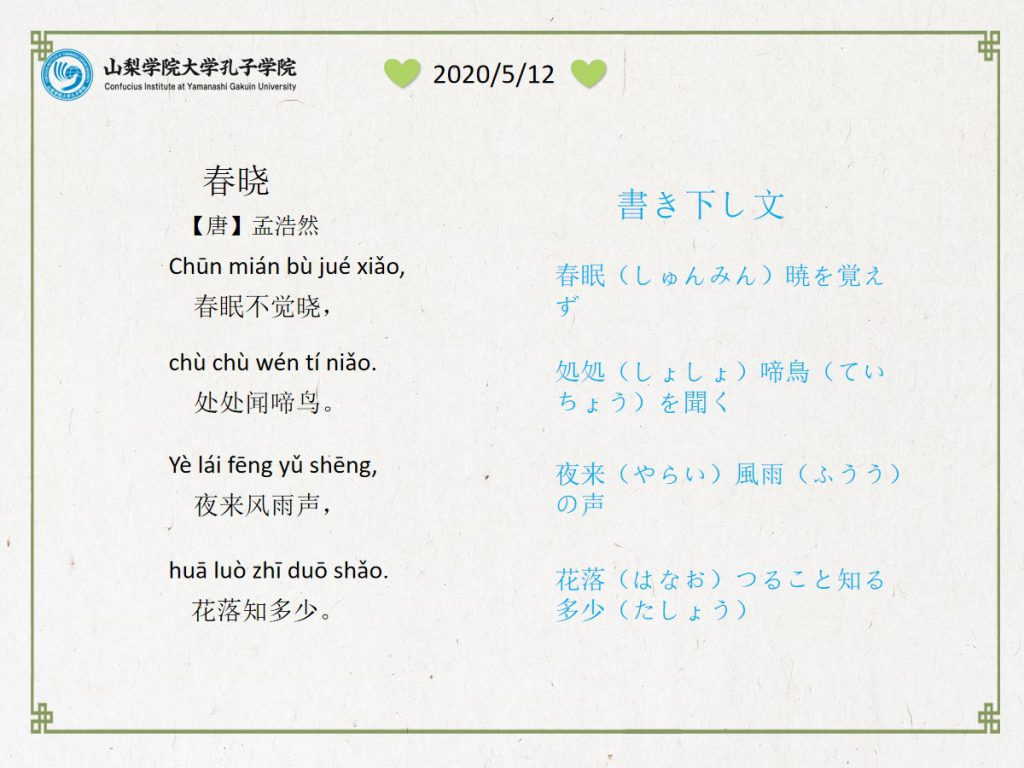 山梨学院大学孔子学院
Confucius Institute at Yamanashi Gakuin University
2020/5/12
春晓
【唐】孟浩然
Chūn mián bù jué xiǎo,
春眠不觉晓，
chù chù wén tí niǎo.
处处闻啼鸟。
Yè lái fēng yǔ shēng,
夜来风雨声，
huā luò zhī duō shǎo.
花落知多少。
書き下し文
春眠（しゅんみん）暁を覚え
ず
処処（しょしょ）啼鳥（てい
ちょう）を聞く
夜来（やらい）風雨（ふうう）
の声
花落（はなお）つること知る
多少（たしょう）